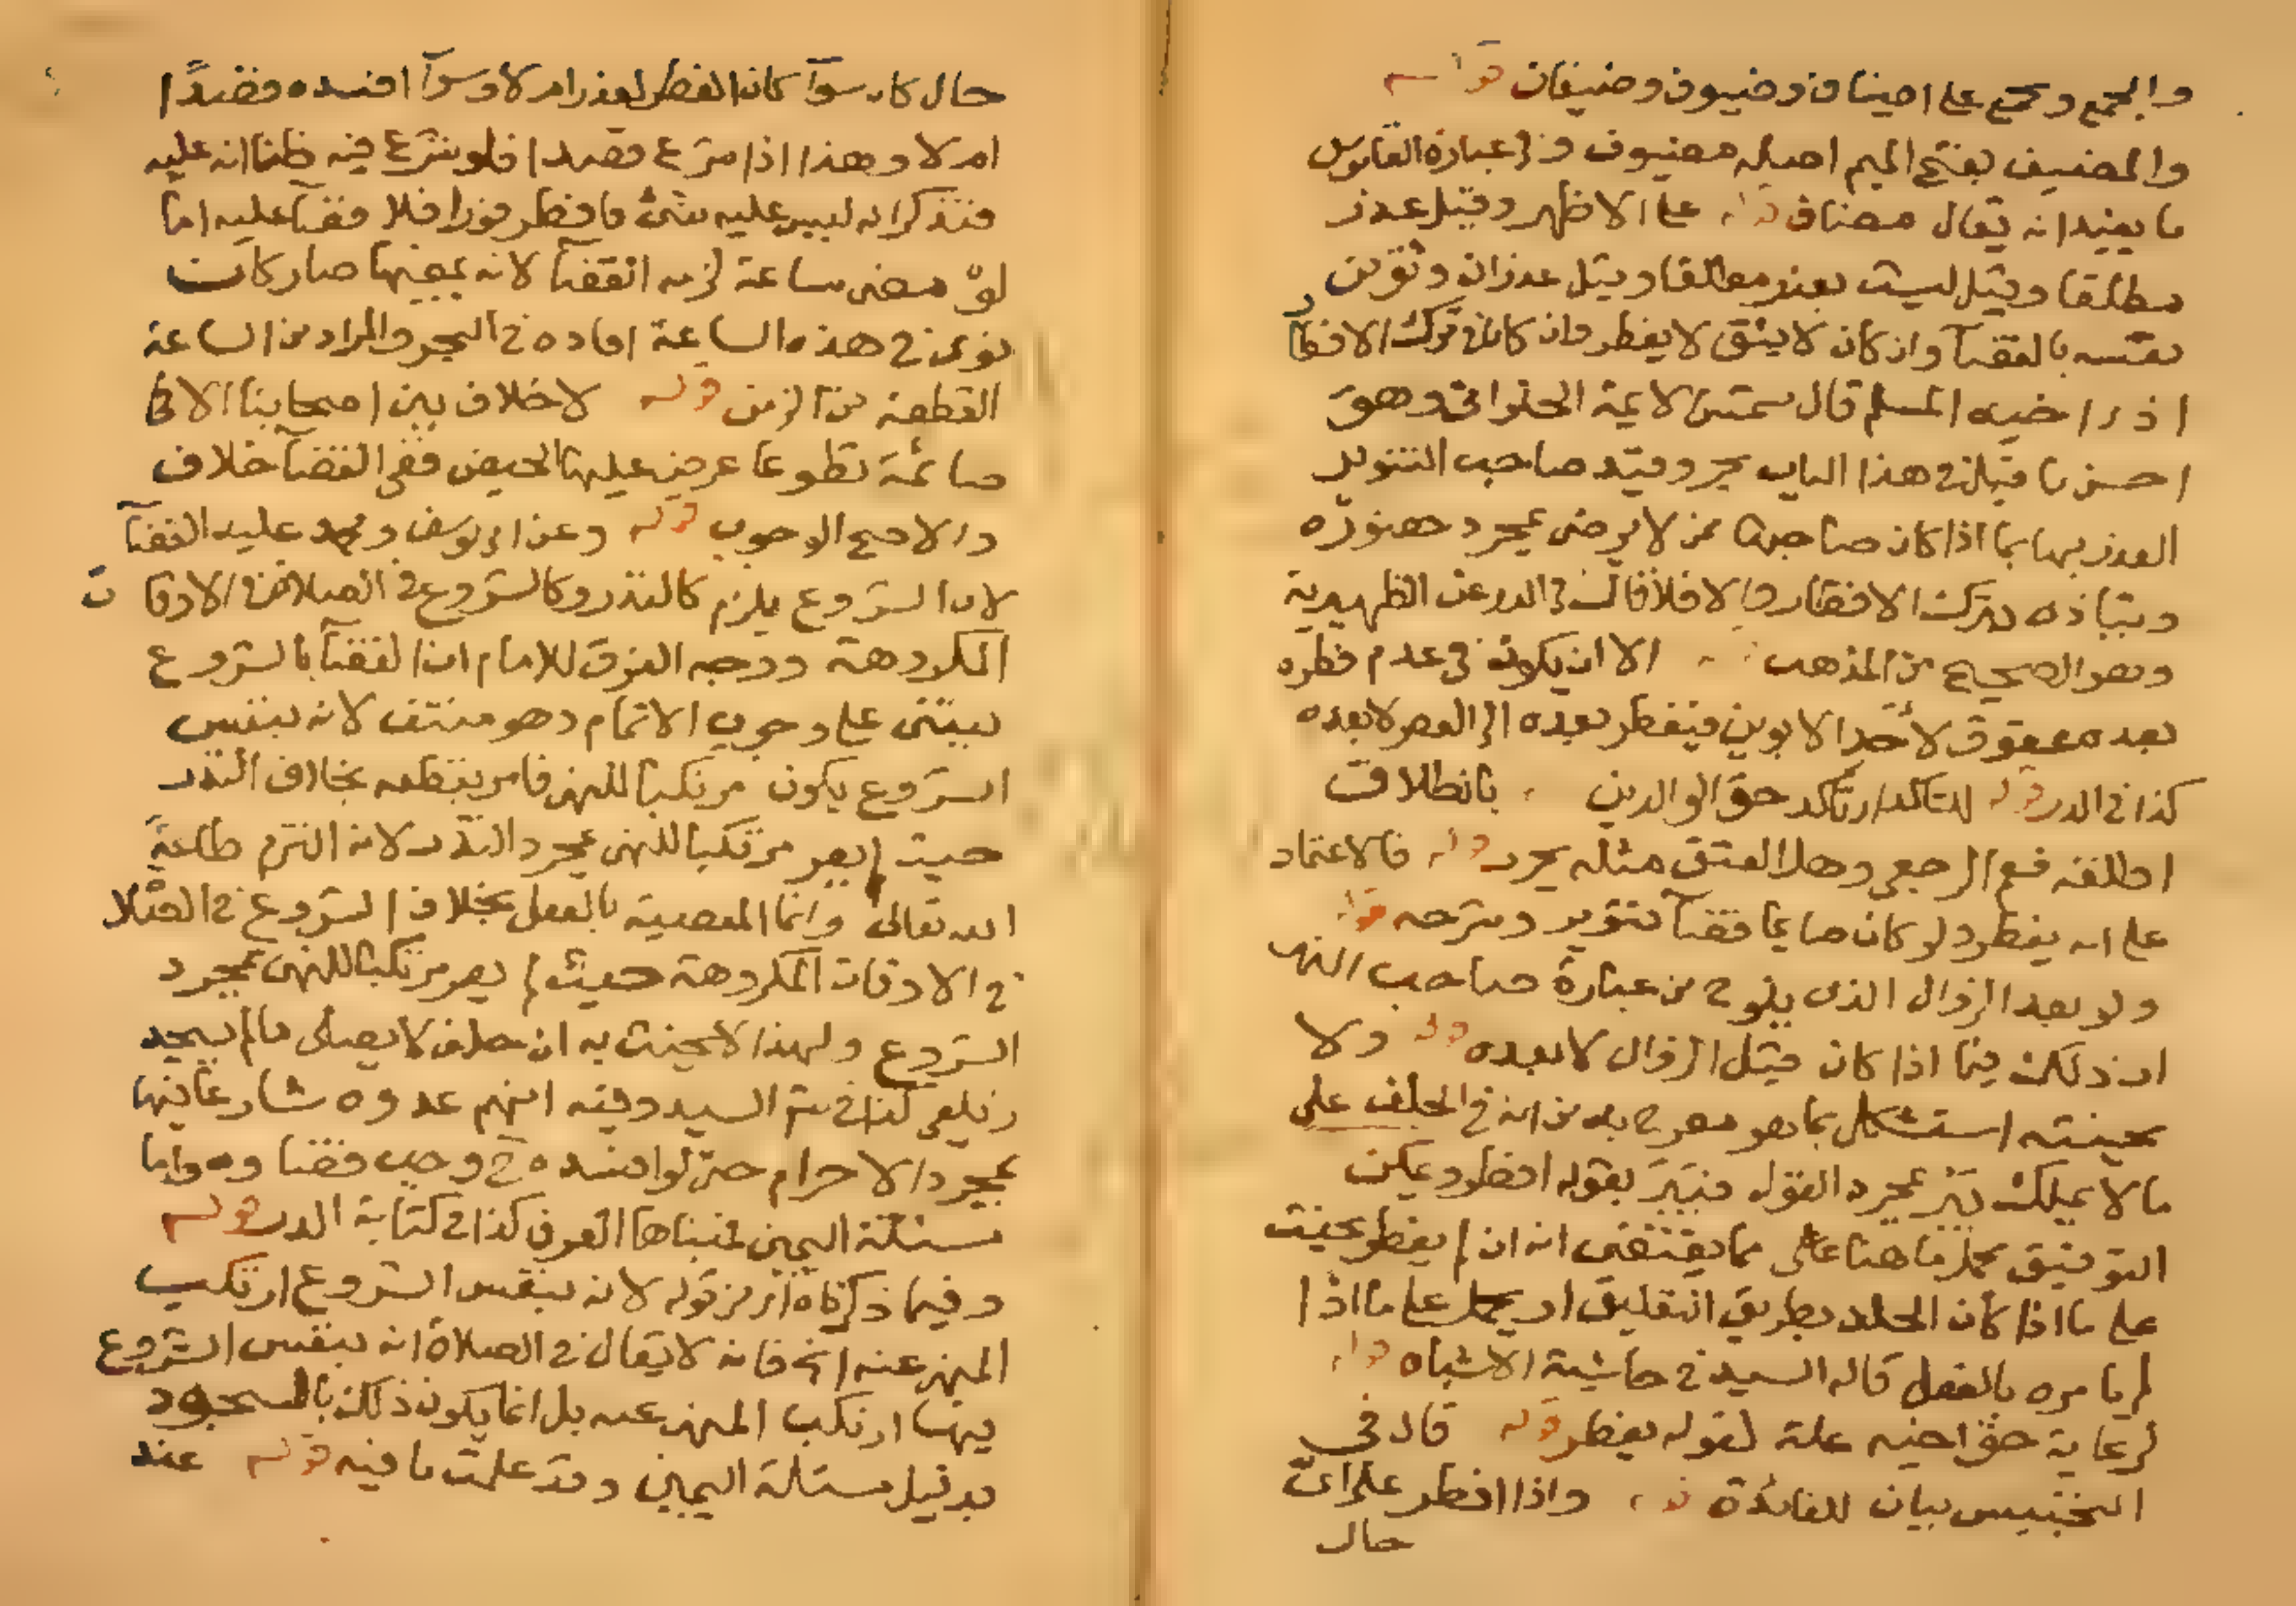 والجمع ويجمع على اضياف وضيوف وضيفان قوله
والمضيف بفتح الميم اصله مضيوف وفي عبارة القاموس
ما يفيد انه يقال مضاف قوله على الاظهر وقيل عذر
مطلقا وقيل ليست بعذر مطلقا وقيل عذر ان وثق من
نفسه بالقضآ وان كان لا يثق لا يفطر وان كان في ترك الافطار
اذى اخيه المسلم قال شمس الايمة الحلواني وهو
احسن ما قيل في هذا الباب بحر وقيد صاحب التنوير
العذر بها بما اذا كان صاحبها ممن لا يرضى بمجرد حضوره
ويتاذى بترك الافطار والا فلا قال في الدر عن الظهيرية
وهو الصحيح من المذهب قوله الا ان يكون في عدم فطره
بعده عقوق لأحد الابوين فيفطر بعده الى العصر لا بعده
كذا في الدر قوله لتاكد اي تاكد حق الوالدين بالطلاق
اطلقه فعم الرجعي وهل العتق مثله يحرر قوله فالاعتماد
على انه يفطر ولو كان صايما قضآ تنوير وشرحه قوله
ولو بعد الزوال الذي يلوح من عبارة صاحب النهر
ان ذلك فيما اذا كان قبل الزوال لا بعده قوله ولا
يحنثه استشكل بما هو مصرح به من انه في الحلف على
ما لا يملك يبر بمجرد القول فيبر بقوله افطر ويمكن
التوفيق بحمل ما هنا على مما يقتضى انه ان لم يفطر يحنث
على ما اذا كان الحلف بطريق التعليق او يحمل على ما اذا
لم يامره بالفعل قاله السيد في حاشية الاشباه قوله
لرعاية حق اخيه علة لقوله يفطر قوله قال في
التجنيس بيان للفائدة قوله واذا افطر على اي
حال
حال كان سوآ كان الفطر لعذر ام لا وسوآ افسده قصدًا
ام لا وهذا اذا شرع قصدا فلو شرع فيه ظنا انه عليه
فتذكر انه ليس عليه شئ فافطر فورا فلا قضآ عليه اما
لو مضى ساعة لزمه القضآ لانه بمضيها صار كانه
نوى في هذه الساعة افاده في البحر والمراد من الساعة
القطعة من الزمن قوله لا خلاف بين اصحابنا الا في
صائمة تطوعا عرض عليها الحيض ففي القضآ خلاف
والاصح الوجوب قوله وعن ابي يوسف ومحمد عليه القضآ
لان الشروع يلزم كالنذر وكالشروع في الصلاة في الاوقات
المكروهة ووجه الفرق للامام ان القضآ بالشروع
يبتنى على وجوب الاتمام وهو منتف لانه بنفس
الشروع يكون مرتكبا للنهي فامر بقطعه بخلاف النذر
حيث لم يصر مرتكبا للنهى بمجرد النذر لانه التزم طاعةً
الله تعالى وانما المعصية بالفعل بخلاف الشروع في الصلا
في الاوقات المكروهة حيث لم يصر مرتكبا للنهى بمجرد
الشروع ولهذا لا يحنث به ان حلف لا يصلى ما لم يسجد
زيلعي كذا في شر السيد وفيه انهم عدوه شارعا فيها
بمجرد الاحرام حتى لو افسده ح وجب قضاوه واما
مسئلة اليمين فمبناها العرف كذا في كتابة الدر قوله
وفيما ذكرناه اي من قوله لانه بنفس الشروع ارتكب
المنهي عنه الخ فانه لا يقال في الصلاة انه بنفس الشروع
فيها ارتكب المنهي عنه بل انما يكون ذلك بالسجود
بدليل مسئلة اليمين وقد علمت ما فيه قوله عند